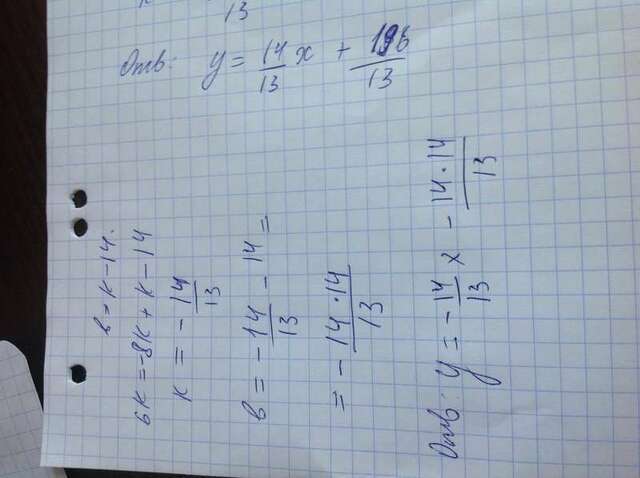 в = к - 14.
6к = -8к + к - 14
к = - 14/13
в = - 14/13 - 14 =
= - 14 · 14/13
Отв: y = - 14/13 x - 14 · 14/13
Отв: y = 14/13 x + 196/13
13